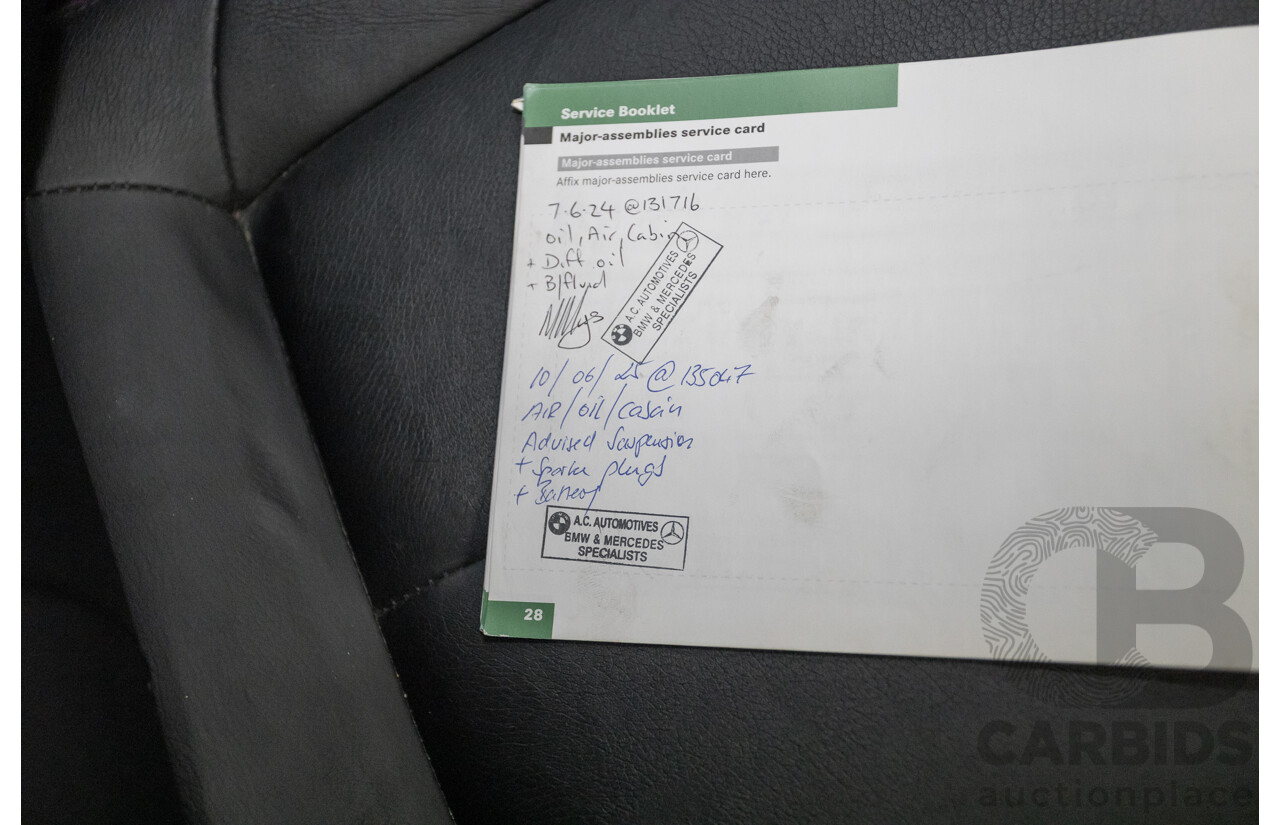 Service Booklet
Major-assemblies service card
Major-assemblies service card
Affix major-assemblies service card here.
7.6.24 @131716
oil, Air, Cabin
+ Diff oil
+ B/fluid
A.C. AUTOMOTIVES
BMW & MERCEDES
SPECIALISTS
10/06/25 @ 135047
AIR/OIL/Cabin
Advised Suspension
+ Spark plugs
+ Battery
A.C. AUTOMOTIVES
BMW & MERCEDES
SPECIALISTS
28
CB
CARBIDS
auctionplace